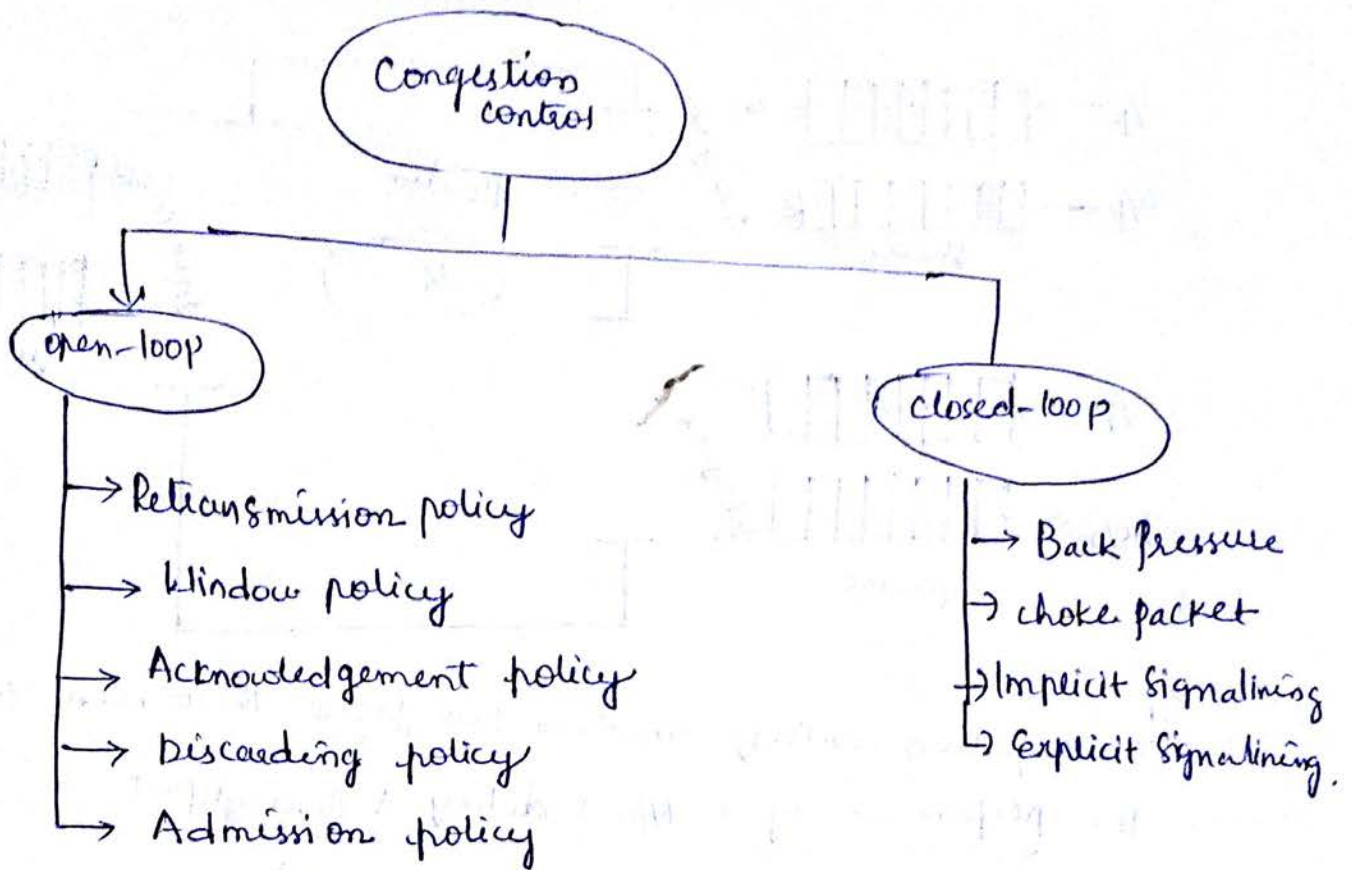 Congestion
control
open-loop
Retransmission policy
Window policy
Acknowledgement policy
Discarding policy
Admission policy
closed-loop
Back Pressure
choke packet
Implicit Signalining
Explicit Signalining.